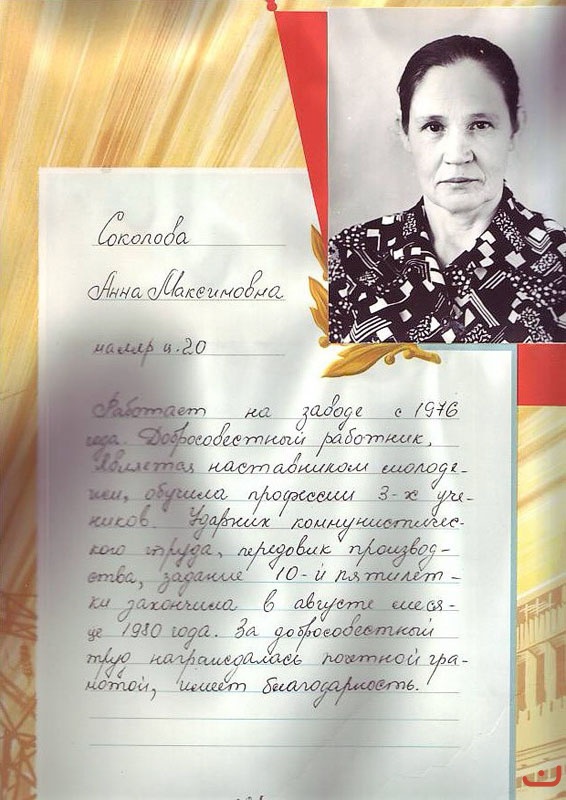 Соколова
Анна Максимовна
маляр ц.20
Работает на заводе с 1976
года. Добросовестный работник,
является наставником молоде-
жи, обучила профессии 3-х уче-
ников. Ударник коммунистичес-
кого труда, передовик производ-
ства, задание 10-й пятилет-
ки закончила в августе меся-
це 1980 года. За добросовестный
труд награждалась почетной гра-
мотой, имеет благодарность.